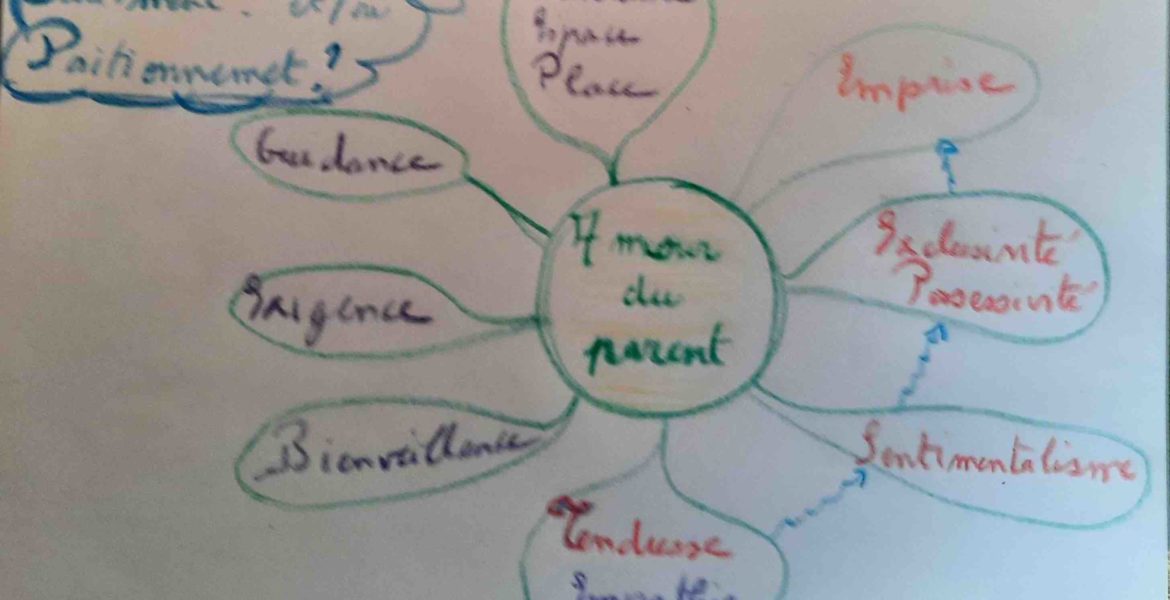 et/ou
Paitionnemet?
Espace
Place
Emprise
Guidance
Amour
du
parent
Exclusivité
Possessivité
Exigence
Bienveillance
Sentimentalisme
Tendresse
Empathie